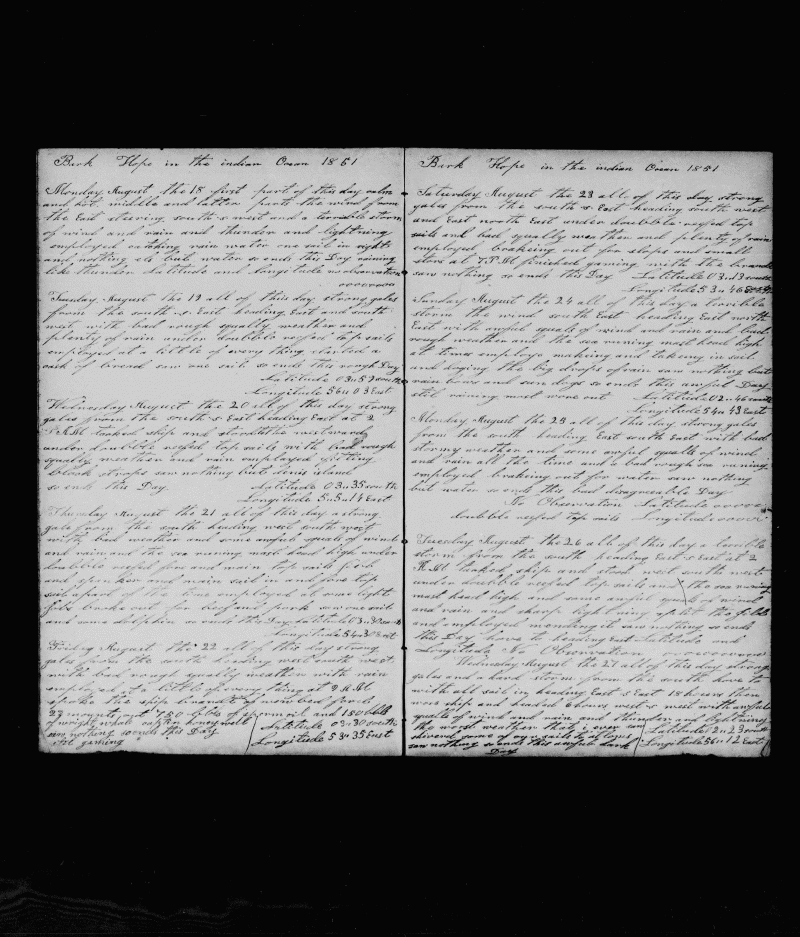 Bark Hope in the indian Ocean 1851
Monday August the 18 first part of this day calm
and hot middle and latter part the wind from
the East steering south s west and a terrible storm
of wind and rain and thunder and lightning
employed catching rain water one sail in sight
and nothing els but water so ends this Day raining
like thunder Latitude and Longitude no observation
Tuesday August the 19 all of this day strong gales
from the south s East heading East and south
west with bad rough squally weather and
plenty of rain under doubble reefed top sails
employed at a little of every thing started a
cask of bread saw one sail so ends this rough Day
Latitude 03 57 south
Longitude 56 03 East
Wednesday August the 20 all of this day strong
gales from the south s East heading East at 2
P.M tacked ship and stood to the westward
under doubble reefed top sails with bad rough
squally weather and rain employed fitting
block straps saw nothing but island
so ends this Day Latitude 03 35 south
Longitude 55 14 East
Thursday August the 21 all of this day a strong
gale from the south heading west south west
with bad weather and some awful squals of wind
and rain and the sea running mast head high under
doubble reefed fore and main top sails
and spanker and main sail in and fore top
sail apart of the time employed at some light
broke out for beef and pork saw one sail
and some dolphin so ends this Day Latitude 03 30 south
Longitude 54 30 East
Friday August the 22 all of this day strong
gales from the south heading west south west
with bad rough squally weather with rain
employed at a little of every thing at 2 P.M
spoke the ship of new bedford
23 months out 750 bbls of sperm oil and 150 bbls
of wright whale captn
saw nothing so ends this Day
still gaming
Latitude 03 30 south
Longitude 53 35 East
Bark Hope in the indian Ocean 1851
Saturday August the 23 all of this day strong
gales from the south s East heading south west
and East north East under doubble reefed top
sails and bad squally weather and plenty of rain
employed braking out for slops and small
stors at 7 P.M finished gaming with the
saw nothing so ends this Day Latitude 03 13 south
Longitude 53 46 East
Sunday August the 24 all of this day a terrible
storm the wind south East heading East north
East with awful squals of wind and rain and bad
rough weather and the sea running mast head high
at times employe making and takeing in sail
and doging the big drops of rain saw nothing but
rain bows and sun dogs so ends this awful Day
still raining most wore out Latitude 02 46 south
Longitude 54 43 East
Monday August the 25 all of this day strong gales
from the south heading East south East with bad
stormy weather and some awful squals of wind
and rain all the time and a bad rough sea running
employed braking out for water saw nothing
but water so ends this bad disagreeable Day
No Observation Latitude
doubble reefed top sails Longitude
Tuesday August the 26 all of this day a terrible
storm from the south heading East s East at 2
P.M tacked ship and stood west south west
under doubble reefed top sails and the sea running
mast head high and some awful squals of wind
and rain and sharp lightning
and employed mending it saw nothing so ends
this Day hove to heading East Latitude and
Longitude No Observation
Wednesday August the 27 all of this day strong
gales and a hard storm from the south hove to
with all sail in heading East s East 18 hours then
wore ship and headed 6 hours west s west with awful
squals of wind and rain and thunder and lightning
the worst weather that i ever saw
shivered some of our sails to
saw nothing so ends this awful dark
Day
Latitude 2 23 south
Longitude 56 12 East